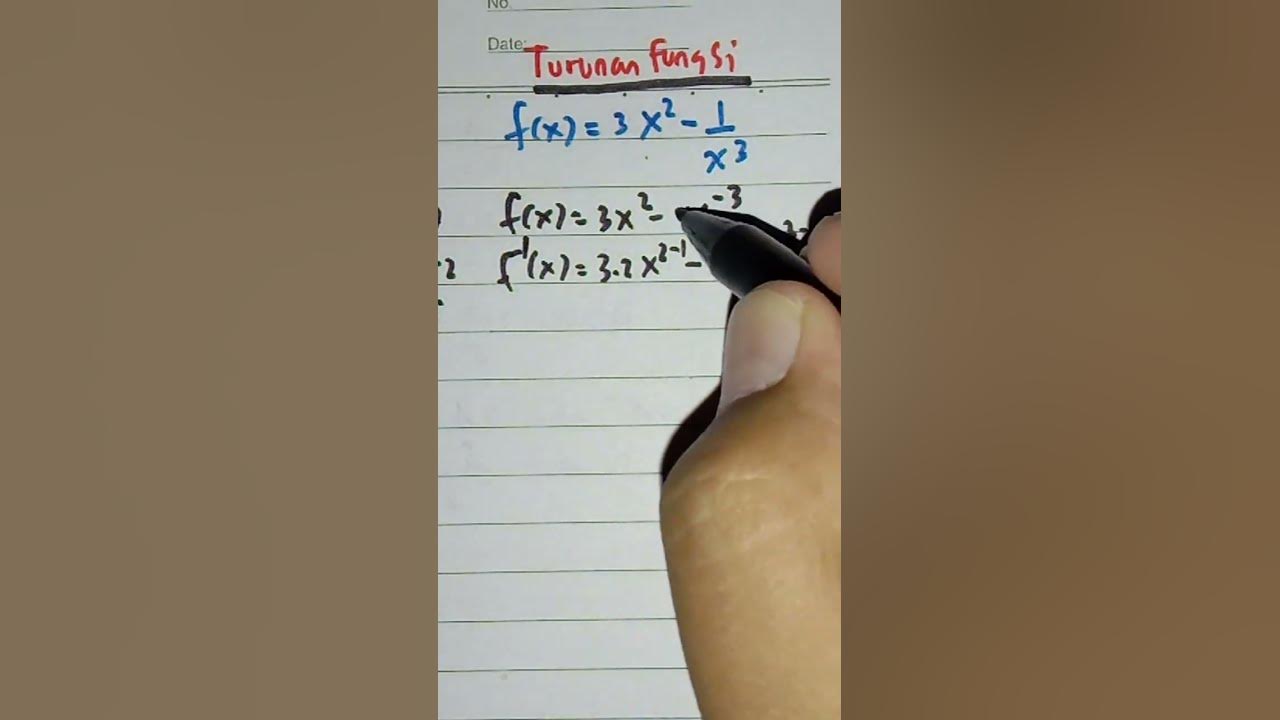 No
Date:
Turunan Fungsi
f(x) = 3x² - 1/x³
f(x) = 3x² - x⁻³
f'(x) = 3.2x²⁻¹ -